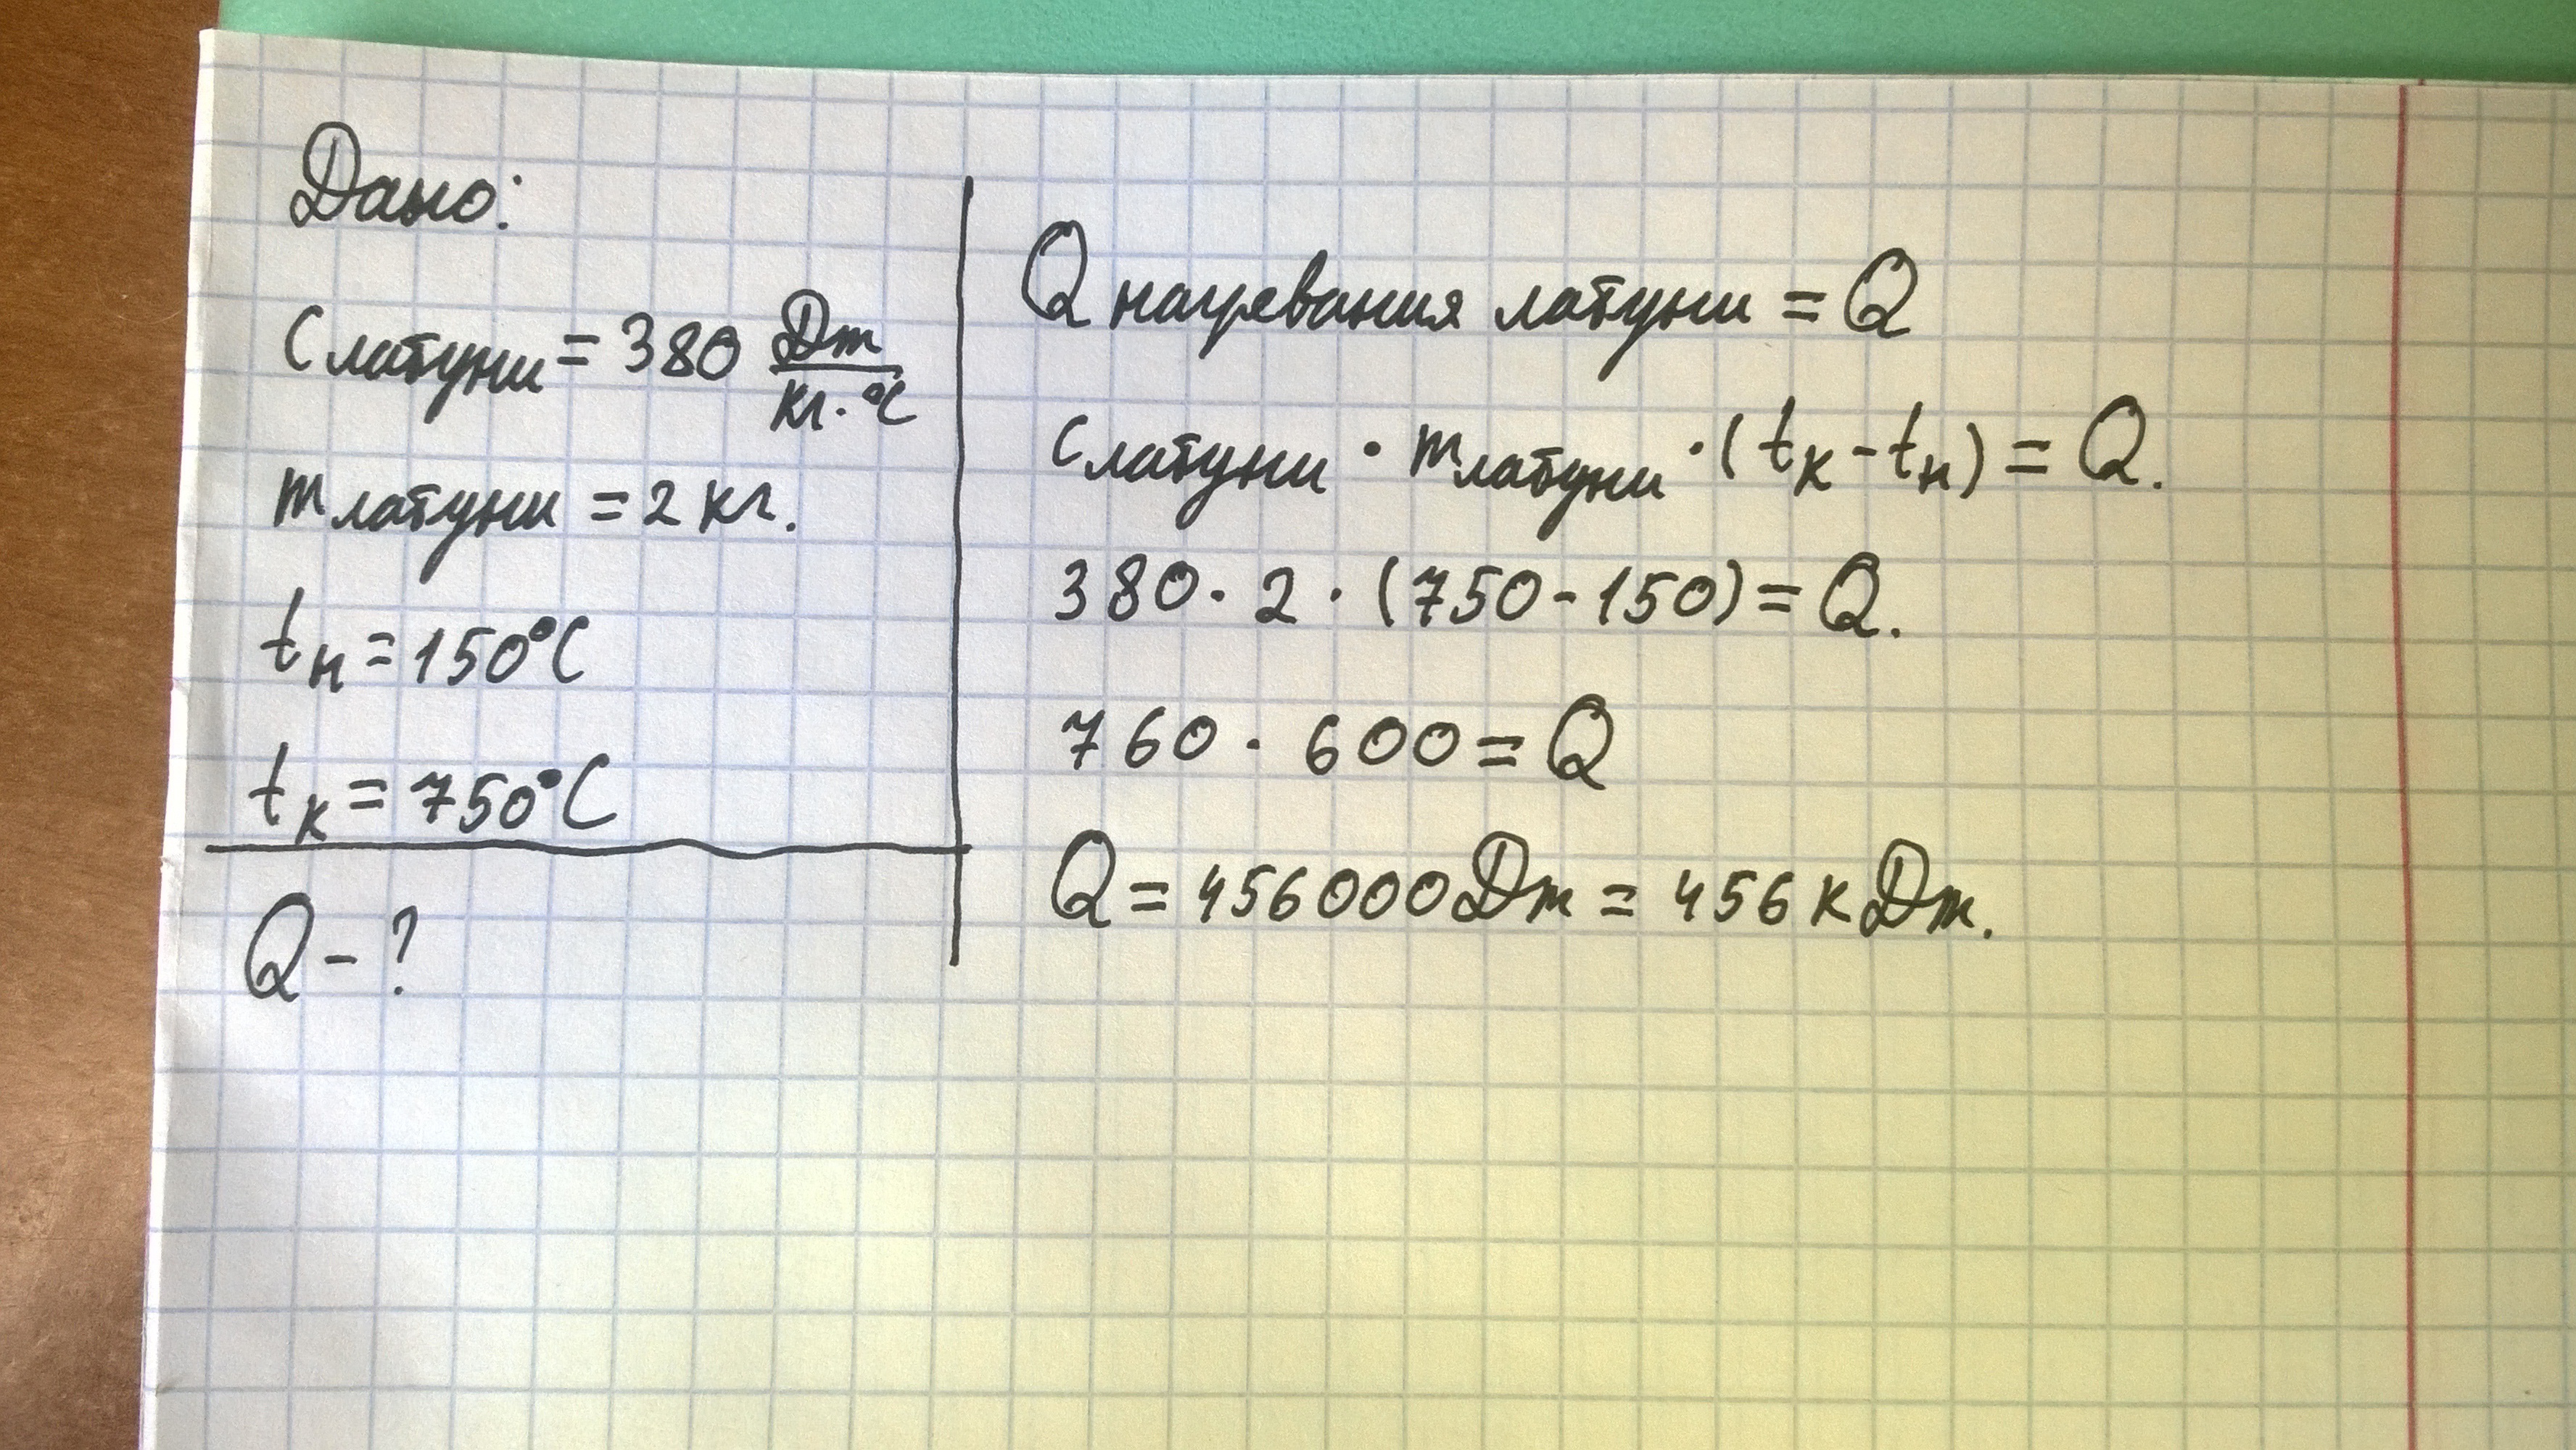 Дано:
Cлатуни = 380 Дж/кг·°C
mлатуни = 2 кг.
tн = 150°C
tк = 750°C
Q - ?
Q нагревания латуни = Q
Cлатуни · mлатуни · (tк - tн) = Q.
380 · 2 · (750 - 150) = Q.
760 · 600 = Q
Q = 456000 Дж = 456 кДж.